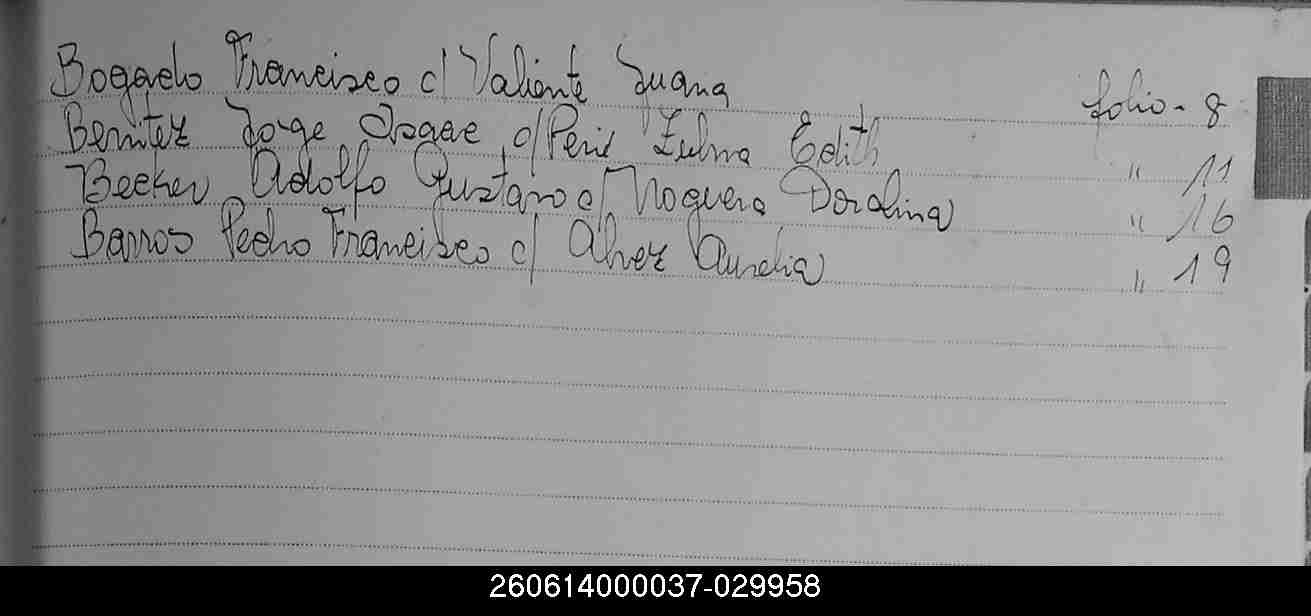 Bogado Francisco c/ Valiente Juana folio - 8
Benitez Jorge Oscar c/ Zulma Edith " 11
Becker Adolfo Gustavo c/ Noguera Doralina " 16
Barros Pedro Francisco c/ Alvez Aurelia " 19
260614000037-029958